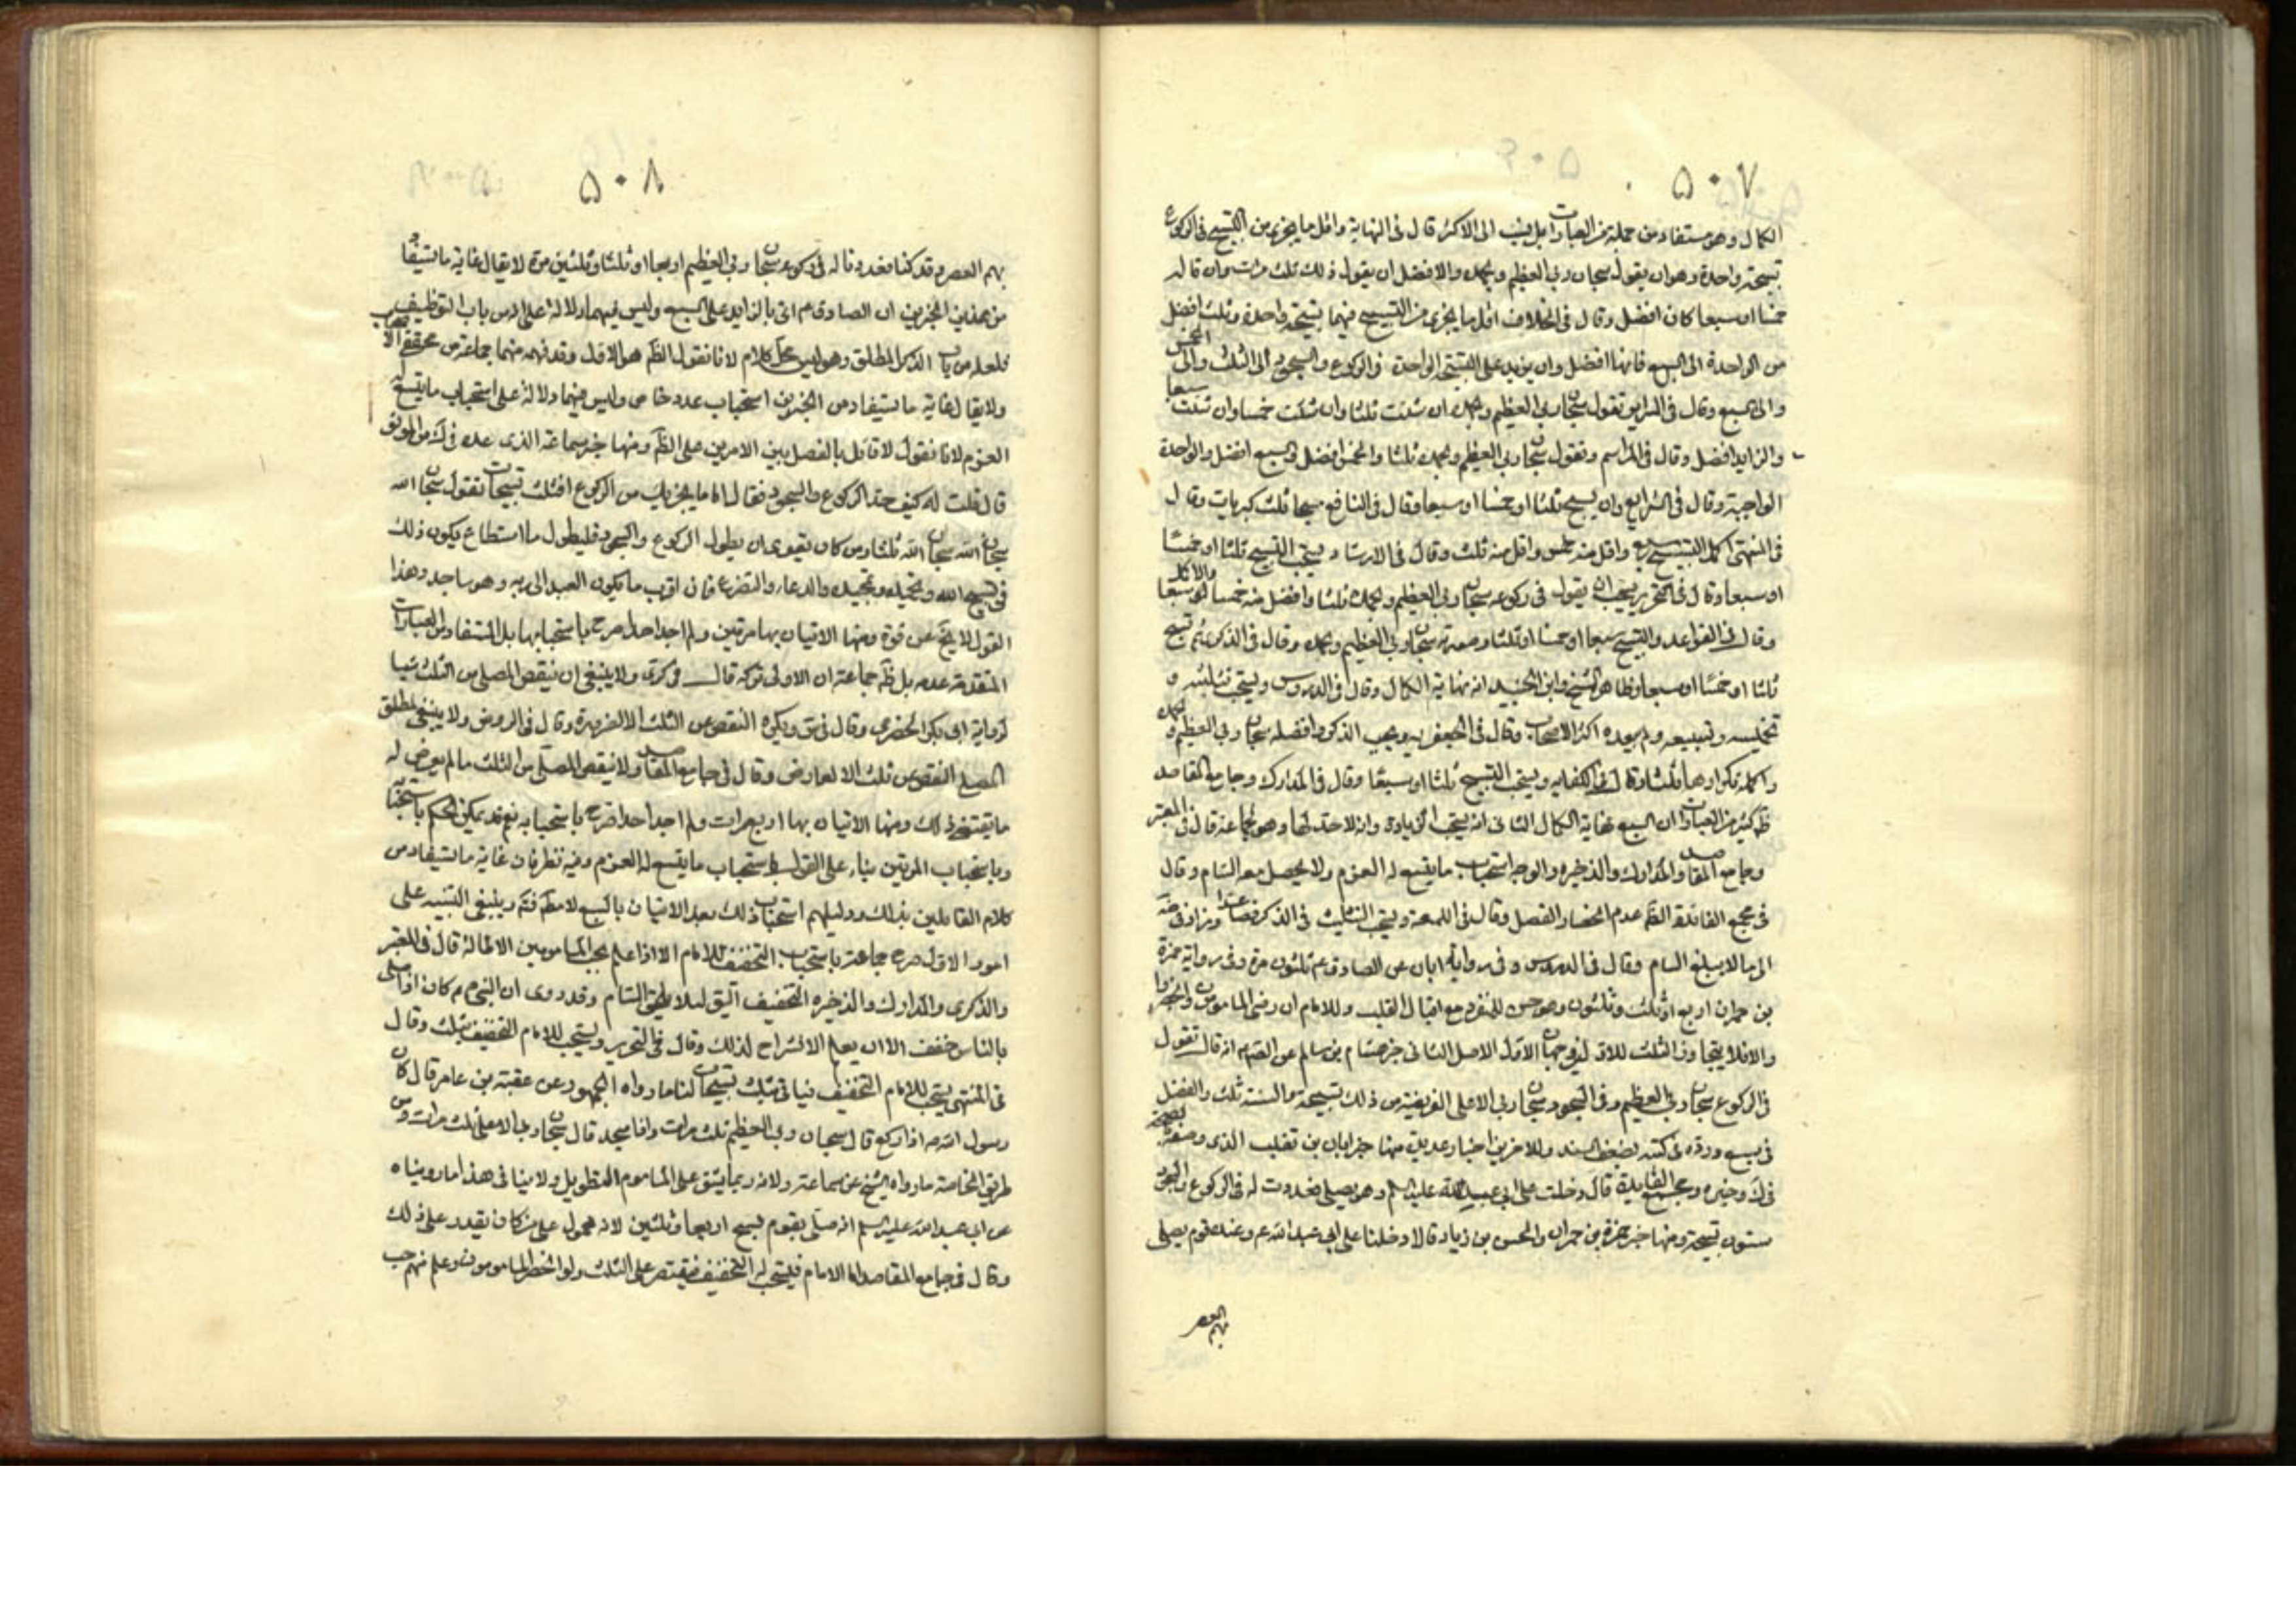 ۵۰۷
الكمال وهو مستفاد من جملة من العبارات بل ينسب الى الاكثر قال فى النهاية واقل ما يجزى من التسبيح فى الركوع
تسبيحة واحدة وهو ان يقول سبحان ربى العظيم وبحمده والافضل ان يقول ذلك ثلث مرات وان قاله
خمسا او سبعا كان افضل وقال فى الخلاف اقل ما يجزى من التسبيح فيهما تسبيحة واحدة وثلث افضل
من الواحدة الى السبع فانها افضل وان يزيد على التسبيحة الواحدة فى الركوع والسجود الى الثلث والى الخمس
والى السبع وقال فى السراير تقول سبحان ربى العظيم وبحمده ان شئت ثلثا وان شئت خمسا وان شئت سبعا
والزايد افضل وقال فى المراسم وتقول سبحان ربى العظيم وبحمده ثلثا والخمس افضل والسبع افضل والواحدة
الواجبة وقال فى الشرايع وان يسبح ثلثا او خمسا او سبعا وقال فى النافع مسبحا ثلث كبريات وقال
فى المنتهى اكمل التسبيح سبع واقل منه خمس واقل منه ثلث وقال فى الارشاد ويستحب التسبيح ثلثا او خمسا
او سبعا وقال فى التحرير يستحب ان يقول فى ركوعه سبحان ربى العظيم وبحمده ثلثا وافضل منه خمسا والاكمل سبعا
وقال فى القواعد والتسبيح سبعا او خمسا او ثلثا وصورته سبحان ربى العظيم وبحمده وقال فى الذكرى ثم تسبح
ثلثا او خمسا او سبعا وظاهر الشيخ وابن الجنيد انه نهاية الكمال وقال فى الدروس ويستحب تثليثه و
تخميسه وتسبيعه ولم يعده اكثر الاصحاب وقال فى الجعفرية ويجب الذكر وافضله سبحان ربى العظيم وبحمده
واكمله تكرارها ثلثا وقال فى الكفايه ويستحب التسبيح ثلثا او سبعا وقال فى المدارك وجامع المقاصد
ظ كثير من العبارات ان السبع نهاية الكمال الثانى انه يستحب الزيادة وانه لا حد لها وهو لجماعة قال فى المعتبر
وجامع المقاصد والمدارك والذخيره والوجه استحباب ما يتسع له العزم ولا يحصل معه السام وقال
فى مجمع الفائدة الظ عدم انحصار الفضل وقال فى اللمعة ويستحب التثليث فى الذكر فصاعدا وزاد فى ضه
الى ما لا يبلغ السام وقال فى الدروس وفى رواية ابان عن الصادق ع ثلثون مرة وفى رواية حمزة
بن حمران اربع او ثلث وثلثون وهو حسن للمنفرد مع اقبال القلب وللامام ان رضى المامومون وانحصروا
والا فلا يتجاوز الثلث للاول وجهان الاول الاصل الثانى خبر هشام بن سالم عن الصادق ع انه قال تقول
فى الركوع سبحان ربى العظيم وفى السجود سبحان ربى الاعلى الفريضة من ذلك تسبيحة والسنة ثلث والفضل
فى سبع ورده فى كتبه لضعف السند وللاخرين اخبار عديدة منها خبر ابان بن تغلب الذى وصف بالصحة
فى لك وخيره ومجمع الفايدة قال دخلت على ابى عبد الله عليه السلم وهو يصلى فعددت له فى الركوع والسجود
ستون تسبيحة ومنها خبر حمزة بن حمران والحسن بن زياد قالا دخلنا على ابى عبد الله ع وعنده قوم يصلى
بهم العصر
۵۰۸
بهم العصر وقد كنا فعددنا له فى ركوعه سبحان ربى العظيم اربعا او ثلثا وثلثين مرة لا يقال غاية ما يستفاد
من هذين الخبرين ان الصادق ع اتى بالزايد على السبع وليس فيهما دلالة على انه من باب التوظيف
فلعله من باب الذكر المطلق وهو ليس محل كلام لانا نقول الظ هو الاول وقد فهمه منهما جماعة من محققى الاصحاب
ولا يقال غاية ما يستفاد من الخبرين استحباب عدد خاص وليس فيهما دلالة على استحباب ما يتسع له
العزم لانا نقول لا قائل بالفصل بين الامرين على الظ ومنها خبر سماعة الذى عده فى لك من الموثق
قال قلت له كيف حد الركوع والسجود فقال اما ما يجزيك من الركوع فثلث تسبيحات تقول سبحان الله
سبحان الله سبحان الله ثلثا ومن كان يقوى ان يطول الركوع والسجود فليطول ما استطاع يكون ذلك
فى تسبيح الله وتحميده وتمجيده والدعاء والتضرع فان اقرب ما يكون العبد الى ربه وهو ساجد وهذا
القول لا يخ عن قوة ومنها الاتيان بها مرتين ولم اجد احدا صرح باستحبابها بل المستفاد من العبارات
المتقدمة عدمه بل ظ جماعة ان الاولى تركه قال فى كرى ولا ينبغى ان ينقص المصلى من الثلث شيا
لرواية ابى بكر الحضرمى وقال فى س ويكره النقص من الثلث الا لضرورة وقال فى الروض ولا ينبغى لمطلق
المصلى النقص من ثلث الا لعارض وقال فى جامع المقاصد ولا ينقص المصلى من الثلث ما لم يعرض له
ما يقتضى ذلك ومنها الاتيان بها اربع مرات ولم اجد احدا صرح باستحبابه نعم قد يمكن الحكم باستحبابه
وباستحباب المرتين بناء على القول باستحباب ما يتسع له العزم وفيه نظر فان غاية ما يستفاد من
كلام القائلين بذلك ودليلهم استحباب ذلك بعد الاتيان بالسبع لا مط فتم وينبغى التنبيه على
امور الاول صرح جماعة باستحباب التخفيف للامام الا اذا علم بحب المامومين الاطالة قال فى المعتبر
والذكرى والمدارك والذخيره التخفيف اليق لئلا يلحق السام وقد روى ان النبى ص كان اذا صلى
بالناس خفف الا ان يعلم الانشراح لذلك وقال فى التحرير ويستحب للامام التخفيف بثلث وقال
فى المنتهى يستحب للامام التخفيف فياتى بثلث تسبيحات لنا ما رواه الجمهور عن عقبة بن عامر قال كان
رسول الله ص اذا ركع قال سبحان ربى العظيم ثلث مرات واذا سجد قال سبحان ربى الاعلى ثلث مرات ومن
طريق الخاصة ما رواه الشيخ عن سماعة ولانه ربما يشق على الماموم التطويل ولا ينافى هذا ما رويناه
عن ابى عبد الله عليه السلم انه صلى بقوم فسبح اربعا وثلثين لانه محمول على من كان يقدر على ذلك
وقال فى جامع المقاصد اما الامام فيستحب له التخفيف فيقتصر على الثلث ولو انحصر المامومون وعلم منهم حب